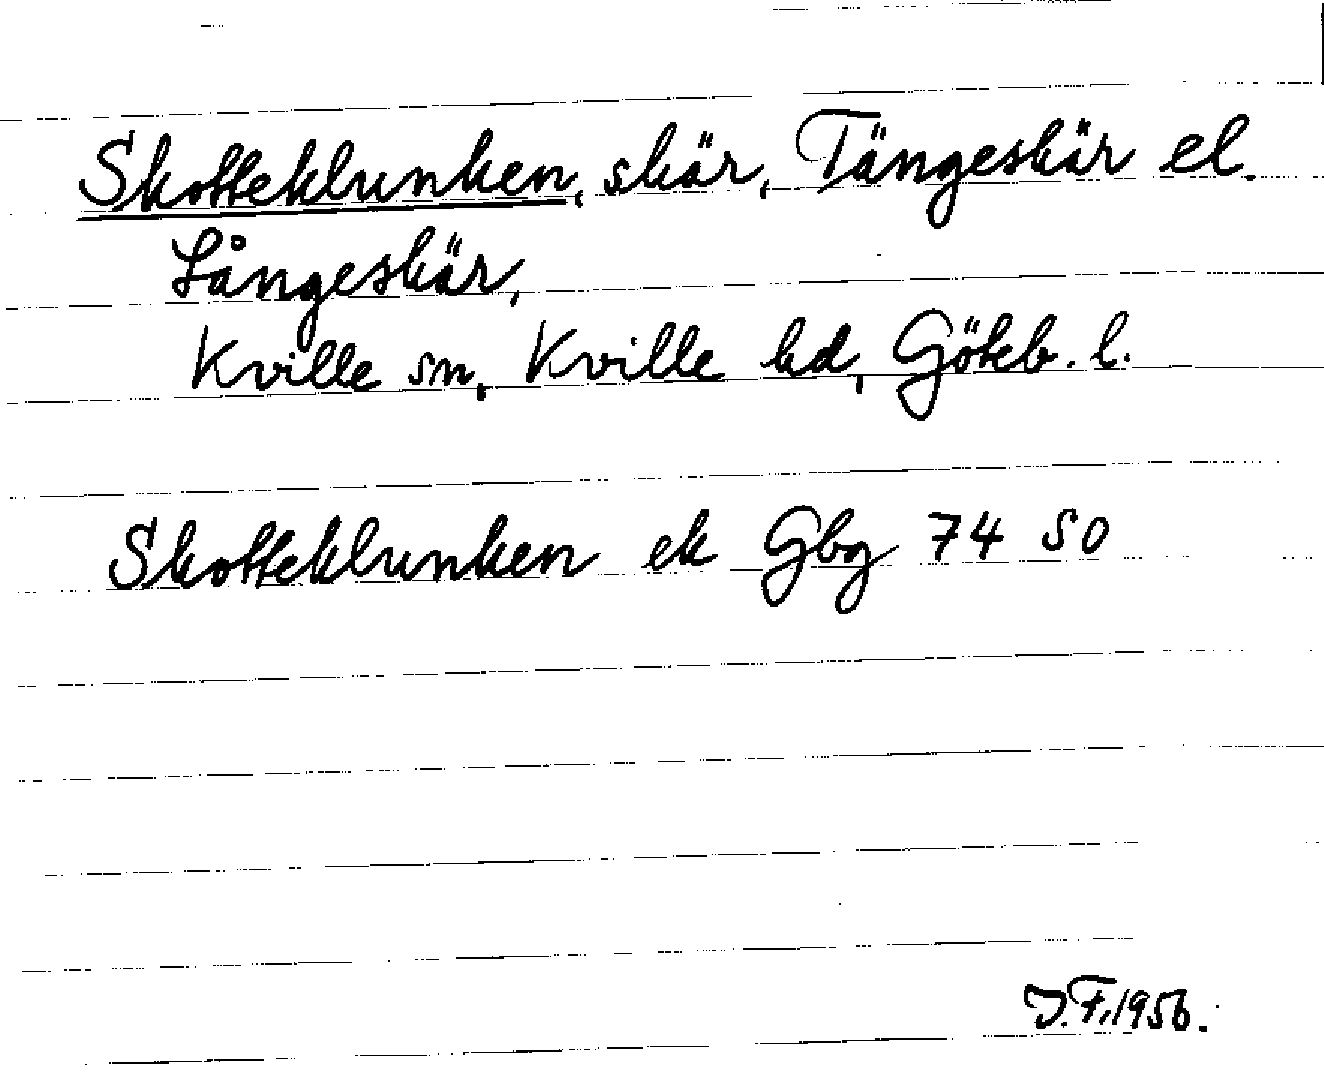 Skotteklunken, skär, Tängeskär el.
Långeskär,
Kville sn, Kville hd, Göteb. l.
Skotteklunken ek Gbg 74 SO
J.F. 1956.